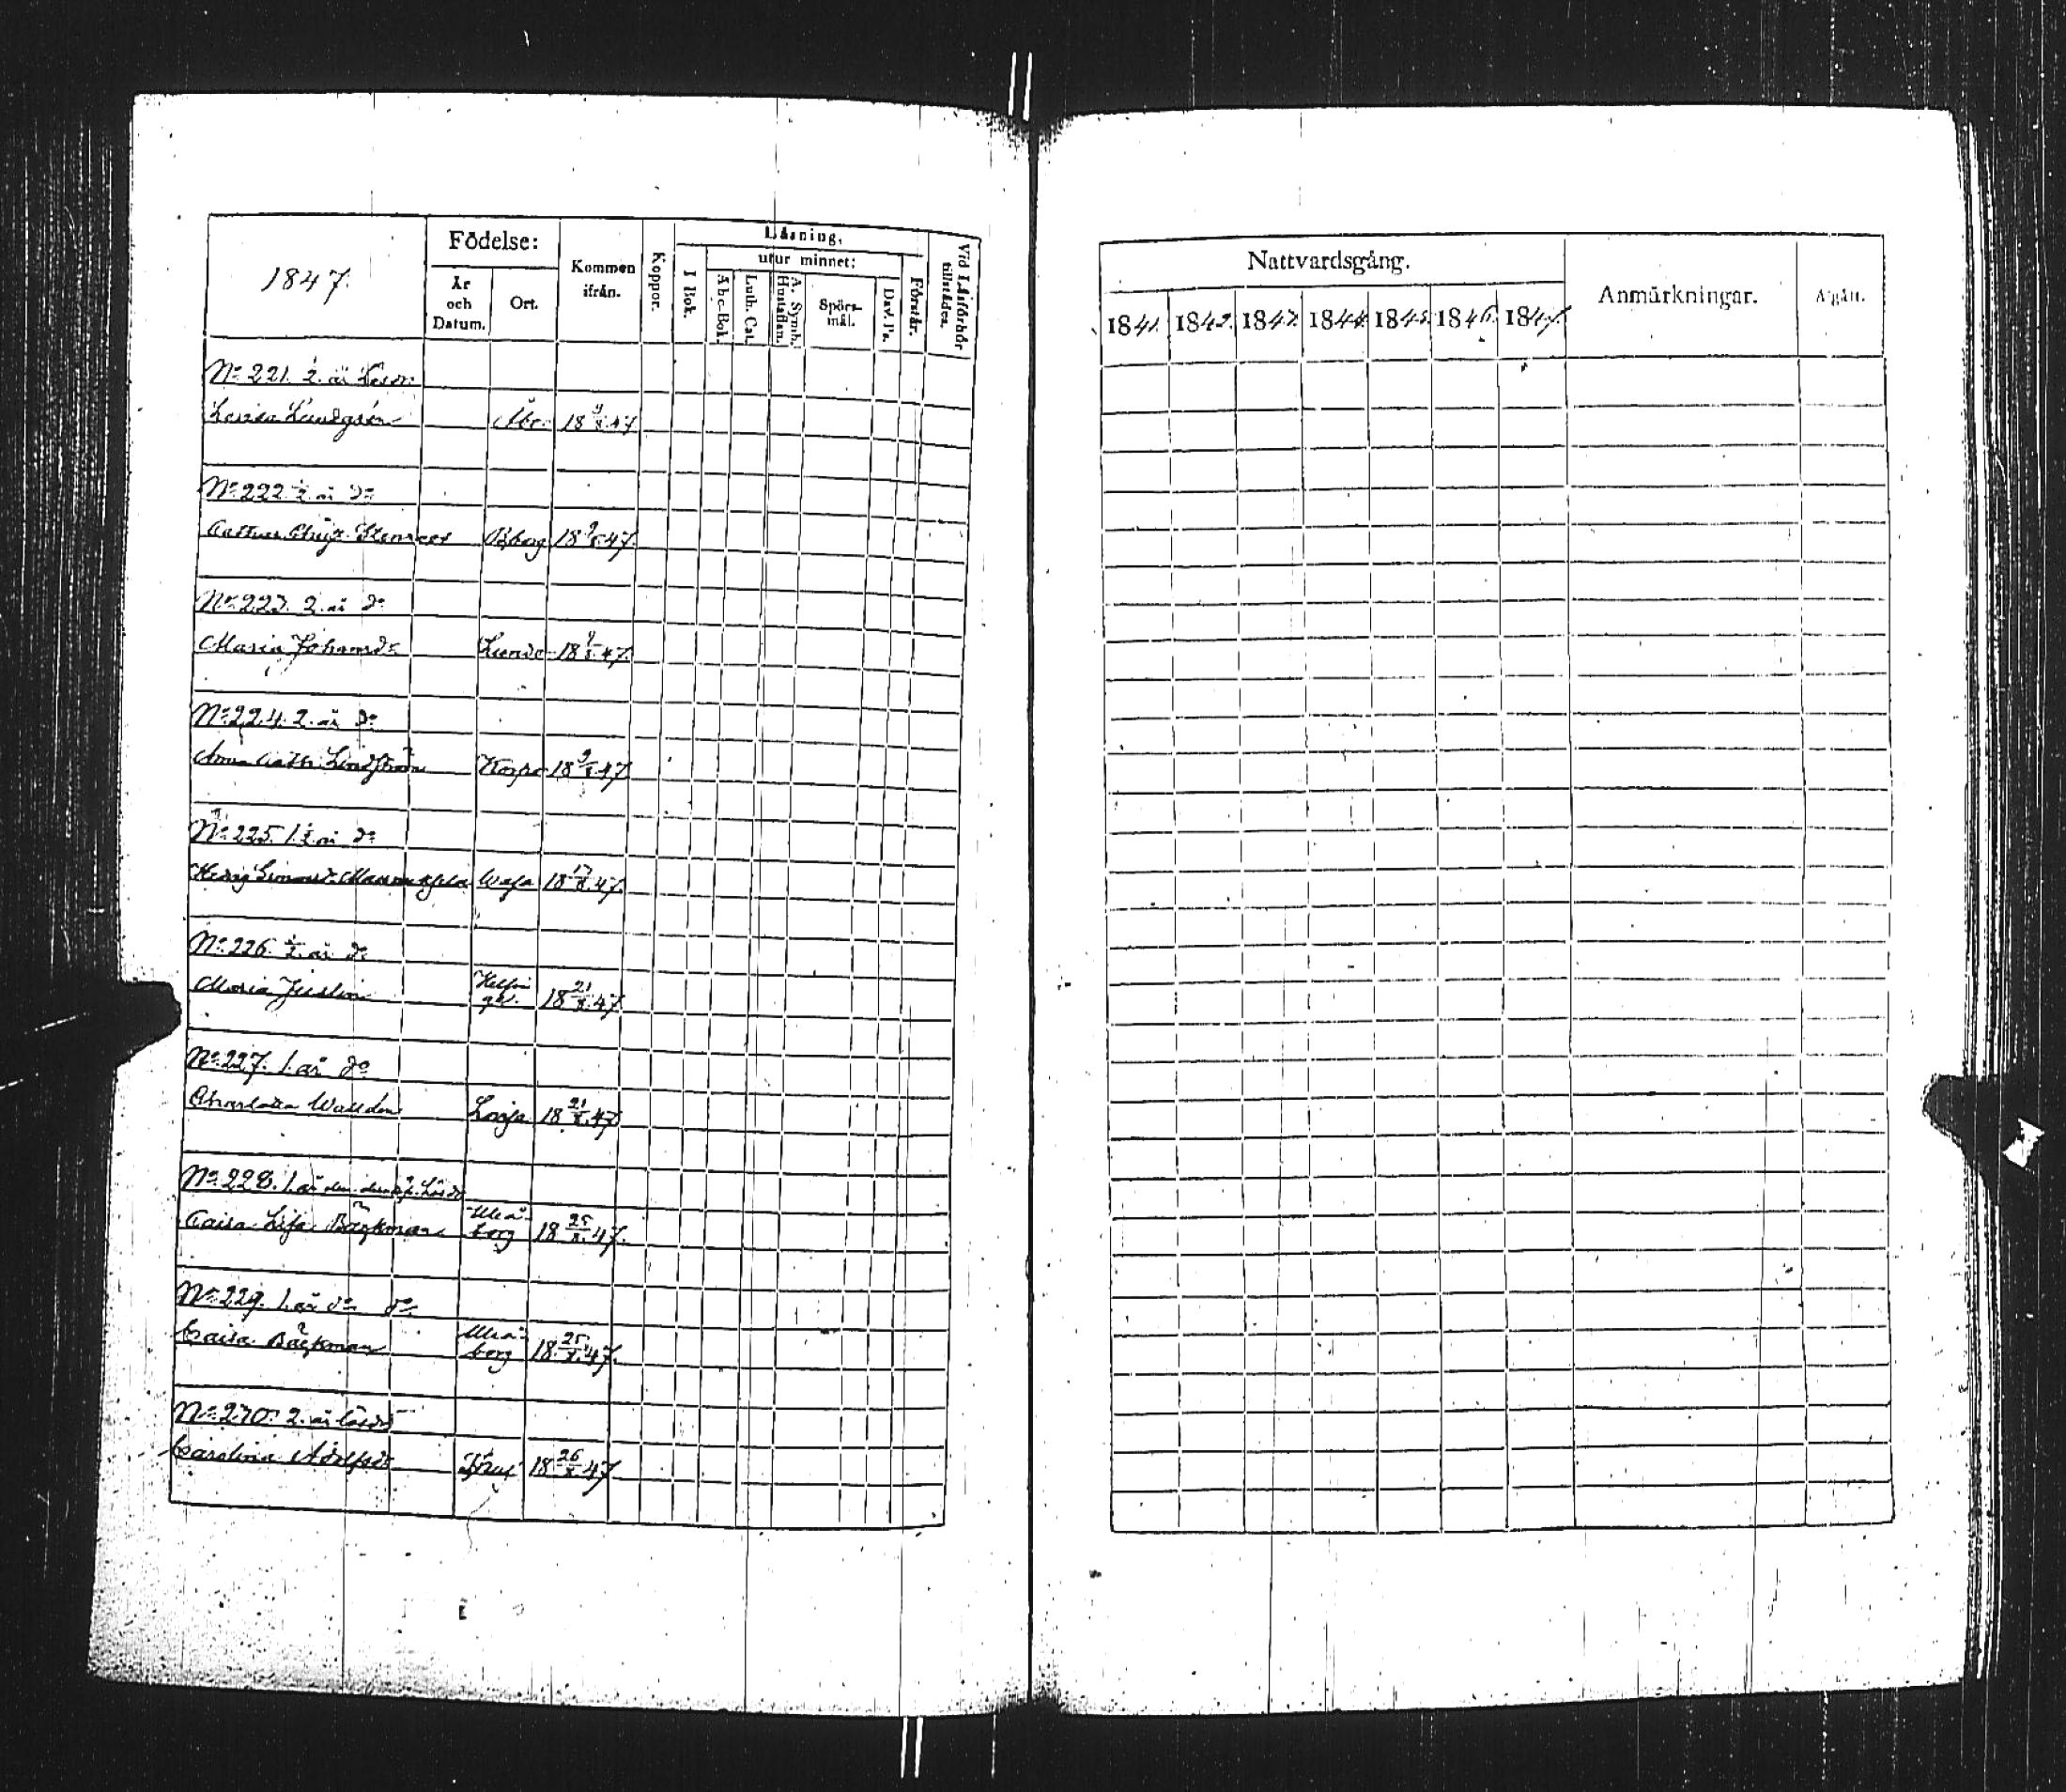 1847.
Födelse:
År och Datum.
Ort.
Kommen ifrån.
Koppor.
Läsning,
I Bok.
utur minnet:
Abc-Bok.
Luth. Cat.
A. Symb. Hustaflan.
Spörs-mål.
Dav. Ps.
Förstår.
Vid Läsförhör tillstädes.
No 221. ½ år
Lovisa Lundgrén Åbo 18 9/8 47
No 222. ½ år do
Borg 18 9/8 47.
No 223. 2. år do
Maria Johansdr 18 9/8 47.
No 224. 2. år do
Anna Cath. Lindström Korpo 18 9/8 47
No 225. 1½ år do
Wasa 18 17/8 47.
No 226. ½ år do
Maria Juslin 18 21/8 47.
No 227. 1. år do
Charlotta Walldén Lojo 18 21/8 47
No 228. 1. år
Caisa Lisa Bäckman Uleåborg 18 25/8 47.
No 229. 1. år do do
Caisa Bäckman Uleåborg 18 25/8 47.
No 230. 2. år
Carolina Adolfsdr 18 26/8 47
Nattvardsgång.
Anmärkningar.
Afgått.
1841. 1842. 1843. 1844. 1845. 1846. 1847.